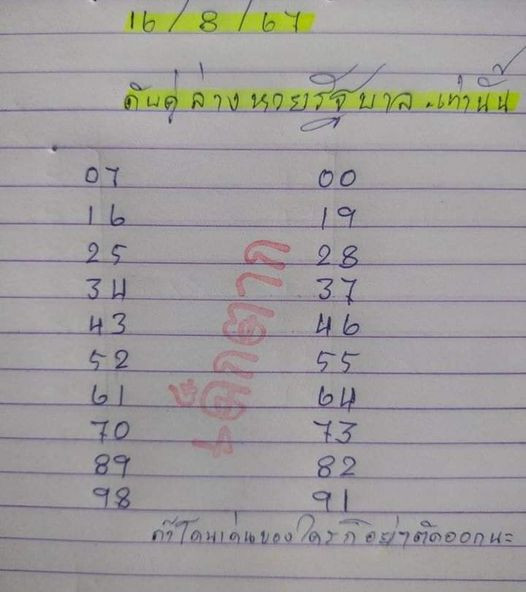 16/8/67
ดับคู่ล่างหวยรัฐบาล.เท่านั้น
07 00
16 19
25 28
34 37
43 46
52 55
61 64
70 73
89 82
98 91
ถ้าโดนเด่นของใครก็อย่าติดออกนะ